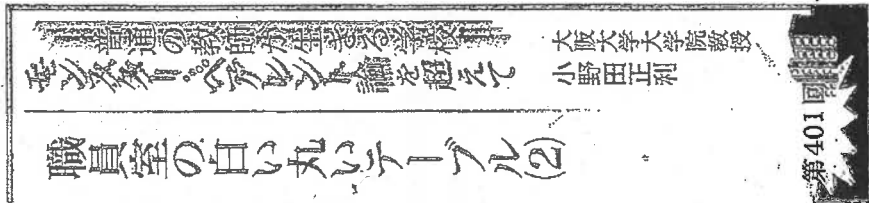 普通の教師が生きる学校
モンスター・ペアレント論を超えて
大阪大学大学院教授
小野田正利
第401回
職員室の白い丸いテーブル(2)